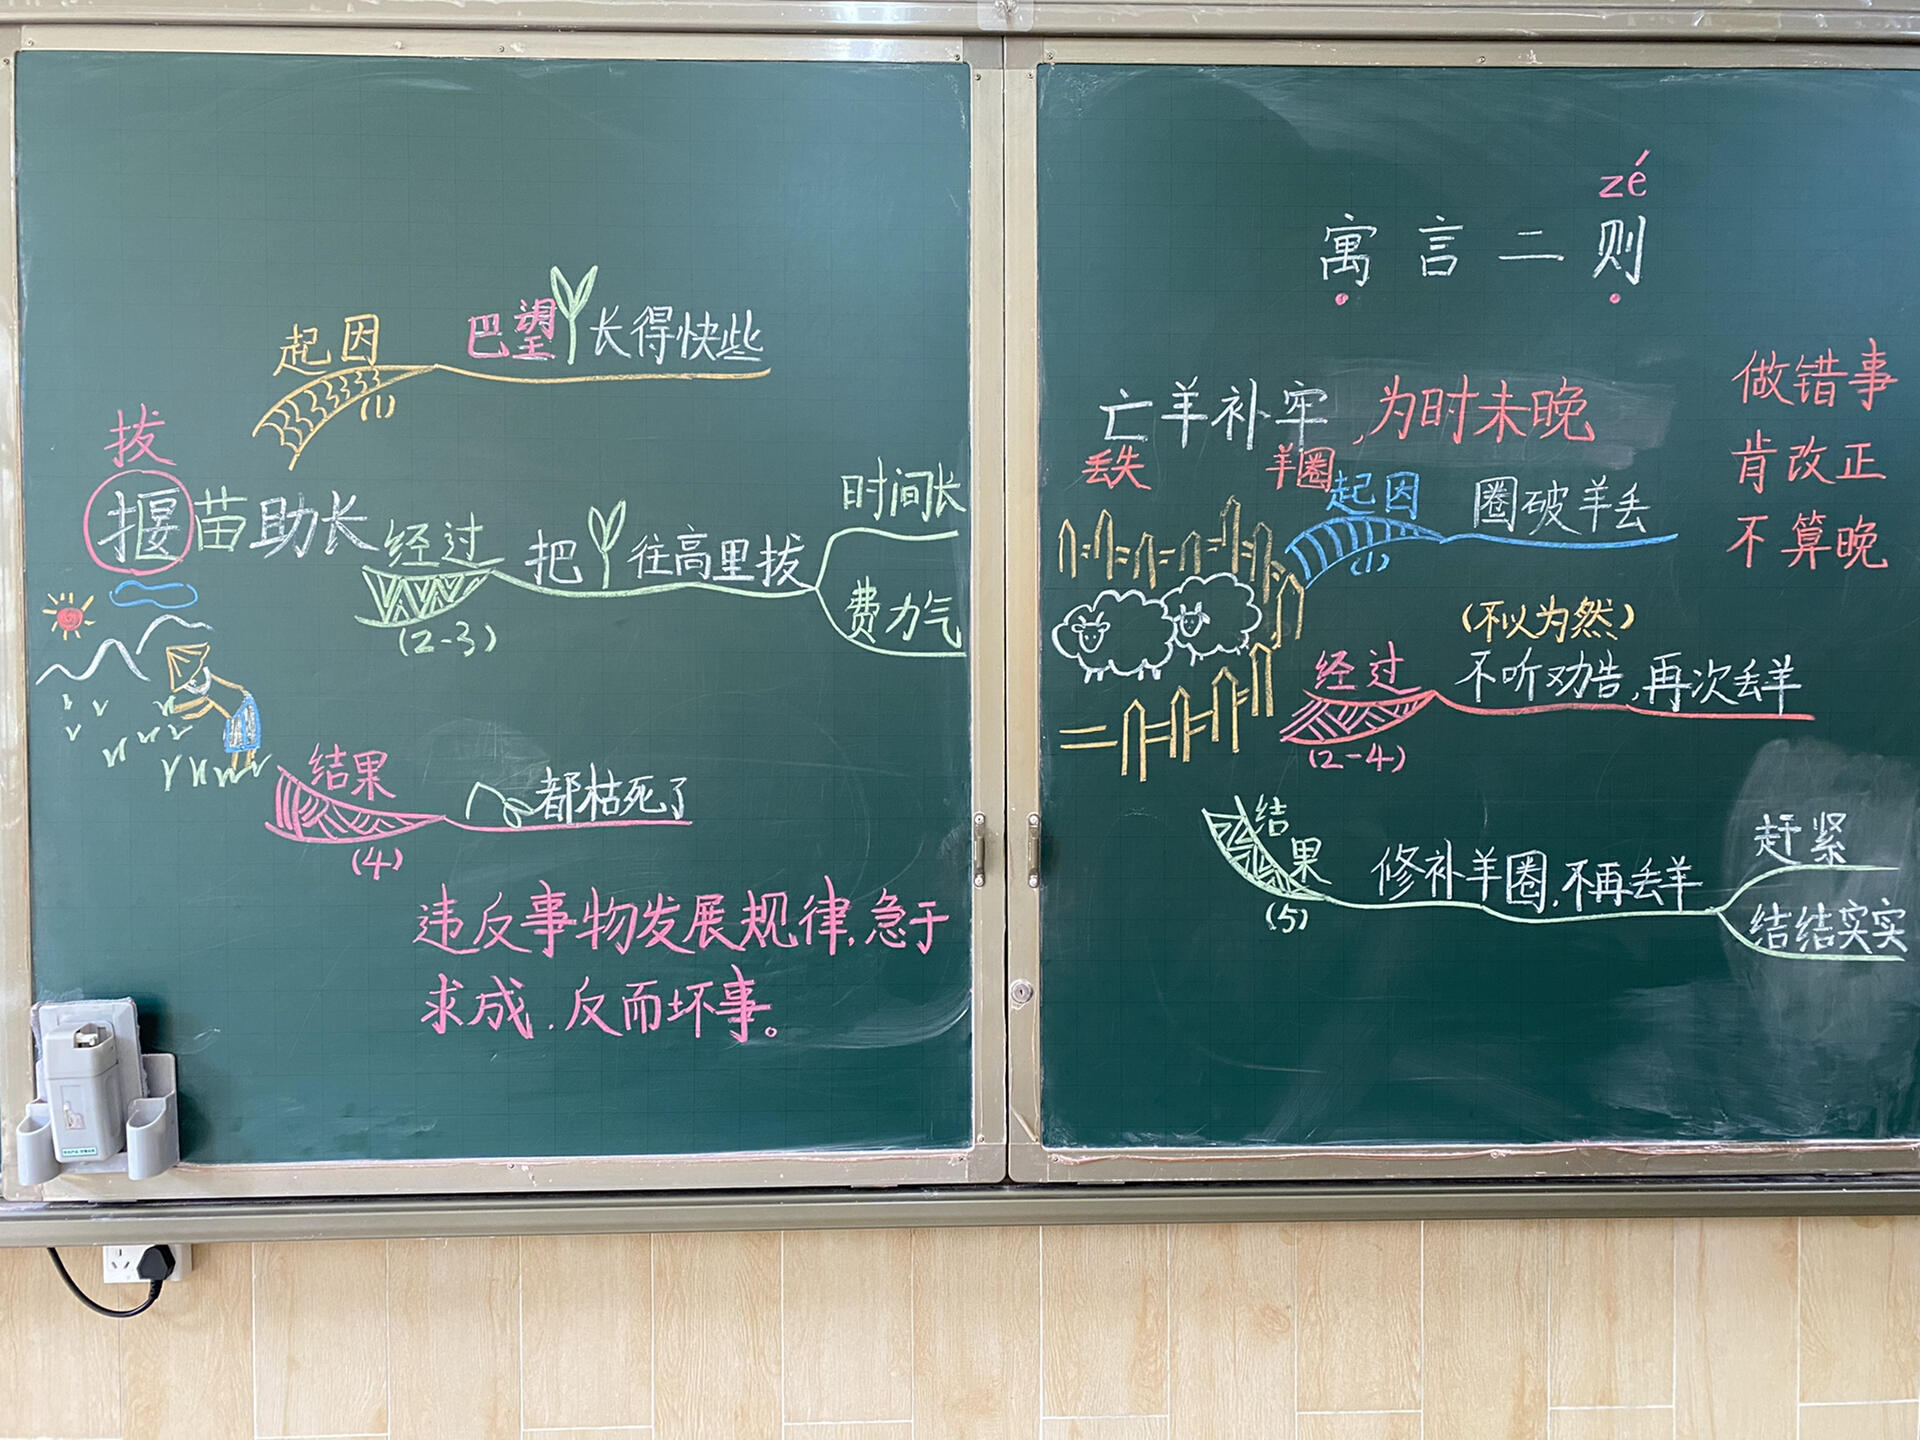 起因
巴望 长得快些
(1)
拔
揠苗助长
经过
把 往高里拔
时间长
费力气
(2-3)
结果
都枯死了
(4)
违反事物发展规律,急于
求成,反而坏事。
zé
寓言二则
亡羊补牢,为时未晚
丢失
羊圈
做错事
肯改正
不算晚
起因
圈破羊丢
(1)
(不以为然)
经过
不听劝告,再次丢羊
(2-4)
结果
修补羊圈,不再丢羊
赶紧
结结实实
(5)